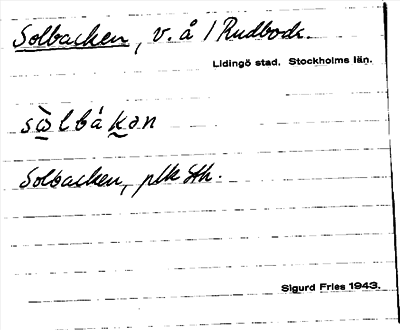 Solbacken, v. å / Rudboda.
Lidingö stad. Stockholms län.
sὼlbákən
Solbacken, plk Sth.
Sigurd Fries 1943.